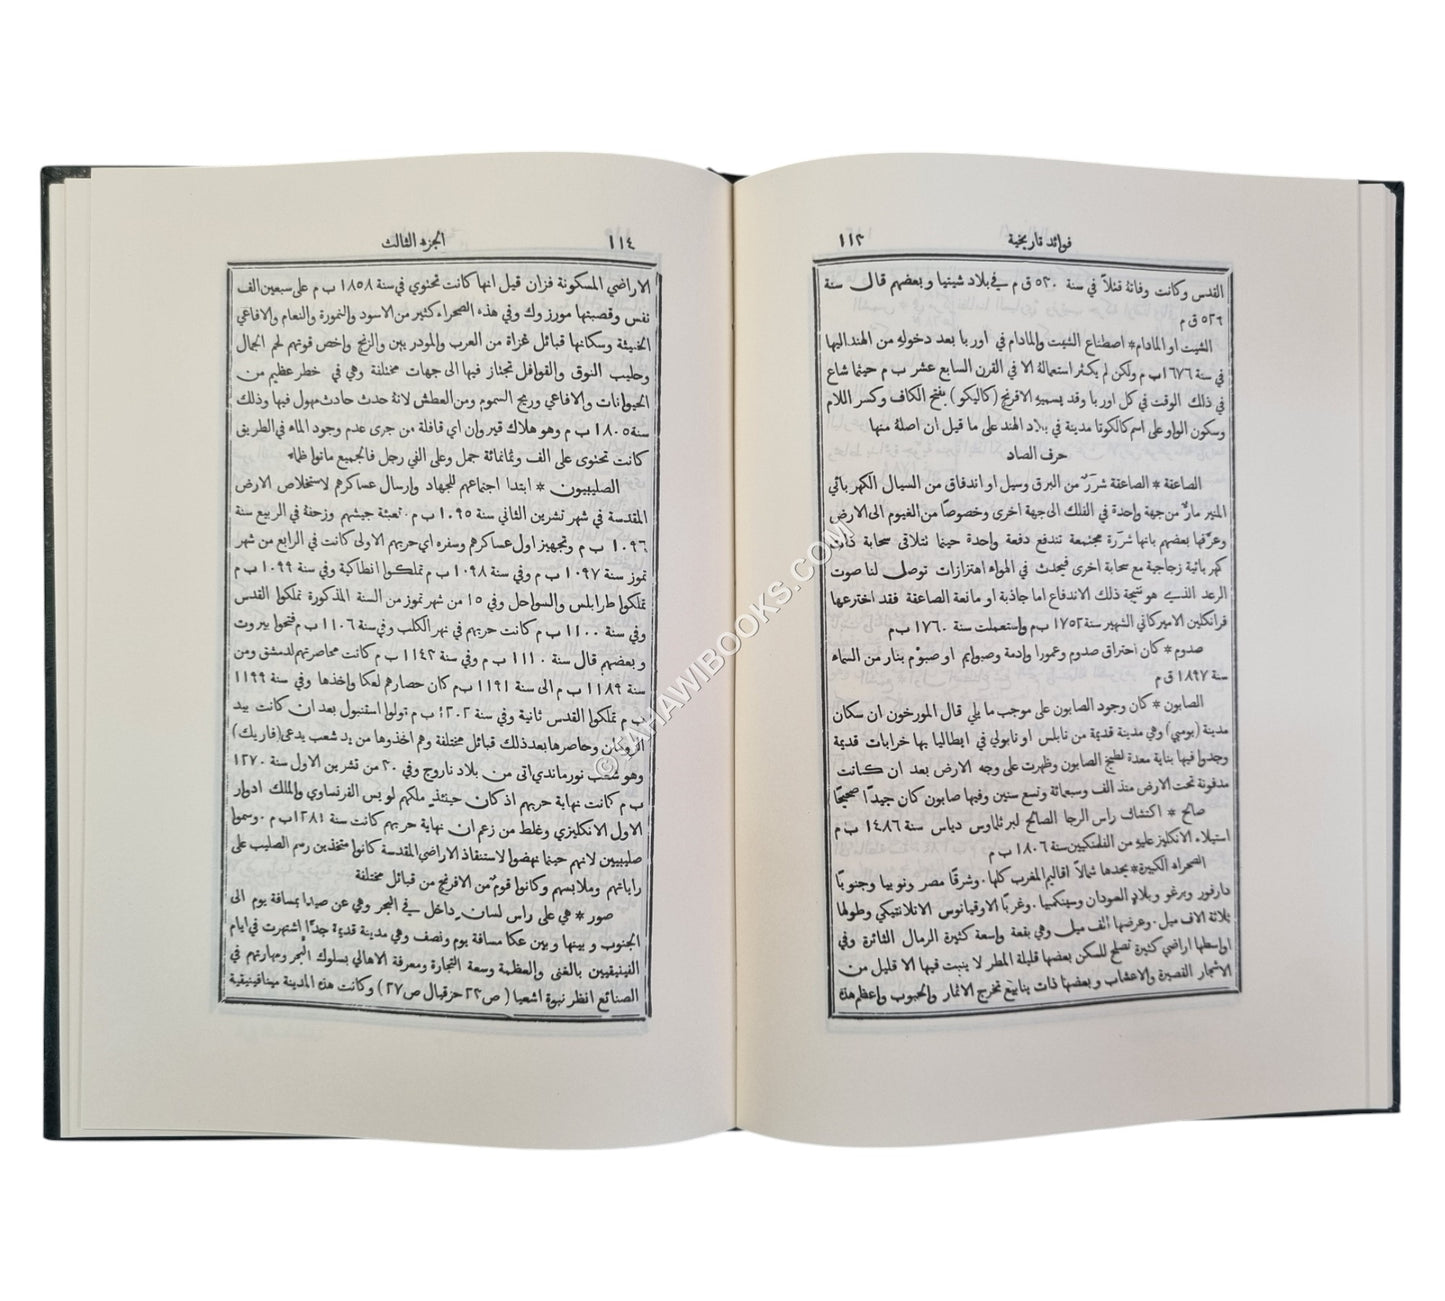 فوائد تاريخية ١١٣
القدس وكانت وفاتهُ قتلاً في سنة ٥٣٠ ق م في بلاد شيتيا وبعضهم قال سنة
٥٢٦ ق م
الشيت او المادام * اصطناع الشيت والمادام في اوربا بعد دخولهِ من الهند اليها
في سنة ١٦٧٦ ب م ولكن لم يكثر استعمالهُ الا في القرن السابع عشر ب م حينما شاع
في ذلك الوقت في كل اوربا وقد يسميهِ الافرنج (كاليكو) بفتح الكاف وكسر اللام
وسكون الواو على اسم كالكوتا مدينة في بلاد الهند على ما قيل ان اصلهُ منها
حرف الصاد
الصاعقة * الصاعقة شررٌ من البرق وسيل او اندفاق من السيال الكهربائي
المنير مارٌ من جهة واحدة في الفلك الى جهة اخرى وخصوصًا من الغيوم الى الارض
وعرّفها بعضهم بانها شررة مجتمعة تندفع دفعة واحدة حينما تتلاقى سحابة ذات
كهربائية زجاجية مع سحابة اخرى فيحدث في الهواء اهتزازات توصل لنا صوت
الرعد الذي هو نتيجة ذلك الاندفاع اما جاذبة او مانعة الصاعقة فقد اخترعها
فرانكلين الاميركاني الشهير سنة ١٧٥٢ ب م واستعملت سنة ١٧٦٠ ب م
صدوم * كان احتراق صدوم وعمورا وادمة وصبوايم او صبوْم بنار من السماء
سنة ١٨٩٧ ق م
الصابون * كان وجود الصابون على موجب ما يلي قال المورخون ان سكان
مدينة (بومبي) وهي مدينة قديمة من نابلس او نابولي في ايطاليا بها خرابات قديمة
وجدوا فيها بناية معدة لطبخ الصابون وظهرت على وجه الارض بعد ان كانت
مدفونة تحت الارض منذ الف وسبعمائة وتسع سنين وفيها صابون كان جيدًا صحيحًا
صالح * اكتشاف راس الرجا الصالح لبرثلماوس دياس سنة ١٤٨٦ ب م
استيلاء الانكليز عليهِ من الفلمنكيين سنة ١٨٠٦ ب م
الصحراء الكبيرة * يحدها شمالاً اقاليم المغرب كلها. وشرقًا مصر ونوبيا وجنوبًا
دارفور وبرغو وبلاد السودان وسينكمبيا. وغربًا الاوقيانوس الاتلانتيكي وطولها
ثلاثة الاف ميل. وعرضها الف ميل وهي بقعة واسعة كثيرة الرمال الثائرة وفي
اواسطها اراضي كثيرة تصلح للسكن بعضها قليلة المطر لا ينبت فيها الا قليل من
الاشجار القصيرة والاعشاب وبعضها ذات ينابيع تخرج الاثمار والحبوب واعظم هذه
١١٤ الجزء الثالث
الاراضي المسكونة فزان قيل انها كانت تحتوي في سنة ١٨٥٨ ب م على سبعين الف
نفس وقصبتها مورزوك وفي هذه الصحراء كثير من الاسود والنمورة والنعام والافاعي
الخبيثة وسكانها قبائل غزاة من العرب والمودر بين والزنج واخص قوتهم لحم الجمال
وحليب النوق والقوافل تجتاز فيها الى جهات مختلفة وهي في خطر عظيم من
الحيوانات والافاعي وريح السموم ومن العطش لانهُ حدث حادث مهول فيها وذلك
سنة ١٨٠٥ ب م وهو هلاك قيروان اي قافلة من جرى عدم وجود الماء في الطريق
كانت تحتوى على الف وثمانمائة جمل وعلى الفي رجل فالجميع ماتوا ظماء
الصليبيون * ابتدا اجتماعهم للجهاد وارسال عساكرهم لاستخلاص الارض
المقدسة في شهر تشرين الثاني سنة ١٠٩٥ ب م. تعبئة جيشهم وزحفهُ في الربيع سنة
١٠٩٦ ب م وتجهيز اول عساكرهم وسفره اي حربهم الاولى كانت في الرابع من شهر
تموز سنة ١٠٩٧ ب م وفي سنة ١٠٩٨ ب م تملكوا انطاكية وفي سنة ١٠٩٩ ب م
تملكوا طرابلس والسواحل وفي ١٥ من شهر تموز من السنة المذكورة تملكوا القدس
وفي سنة ١١٠٠ ب م كانت حربهم في نهر الكلب وفي سنة ١١٠٦ ب م فتحوا بيروت
وبعضهم قال سنة ١١١٠ ب م وفي سنة ١١٤٢ ب م كانت محاصرتهم لدمشق ومن
سنة ١١٨٩ ب م الى سنة ١١٩١ ب م كان حصارهم لعكا واخذها وفي سنة ١١٩٩
ب م تملكوا القدس ثانية وفي سنة ١٢٠٢ ب م تولوا استنبول بعد ان كانت بيد
الرومان وحاصرها بعد ذلك قبائل مختلفة وهم اخذوها من يد شعب يدعى (فاريك)
وهو شعب نورماندي اتى من بلاد ناروج وفي ٣٠ من تشرين الاول سنة ١٢٧٠
ب م كانت نهاية حربهم اذ كان حينئذٍ ملكهم لويس الفرنساوي والملك ادوار
الاول الانكليزي وغلط من زعم ان نهاية حربهم كانت سنة ١٢٨١ ب م. وسموا
صليبيين لانهم حينما نهضوا لاستنقاذ الاراضي المقدسة كانوا متخذين رسم الصليب على
راياتهم وملابسهم وكانوا قومٌ من الافرنج من قبائل مختلفة
صور * هي على راس لسان داخل في البحر وهي عن صيدا بمسافة يوم الى
الجنوب وبينها وبين عكا مسافة يوم ونصف وهي مدينة قديمة جدًا اشتهرت في ايام
الفينيقيين بالغنى والعظمة وسعة التجارة ومعرفة الاهالي بسلوك البحر ومهارتهم في
الصنائع انظر نبوة اشعيا (ص ٢٣ حزقيال ص ٢٧) وكانت هذه المدينة مينا فينيقية
©TAHAWIBOOKS.COM